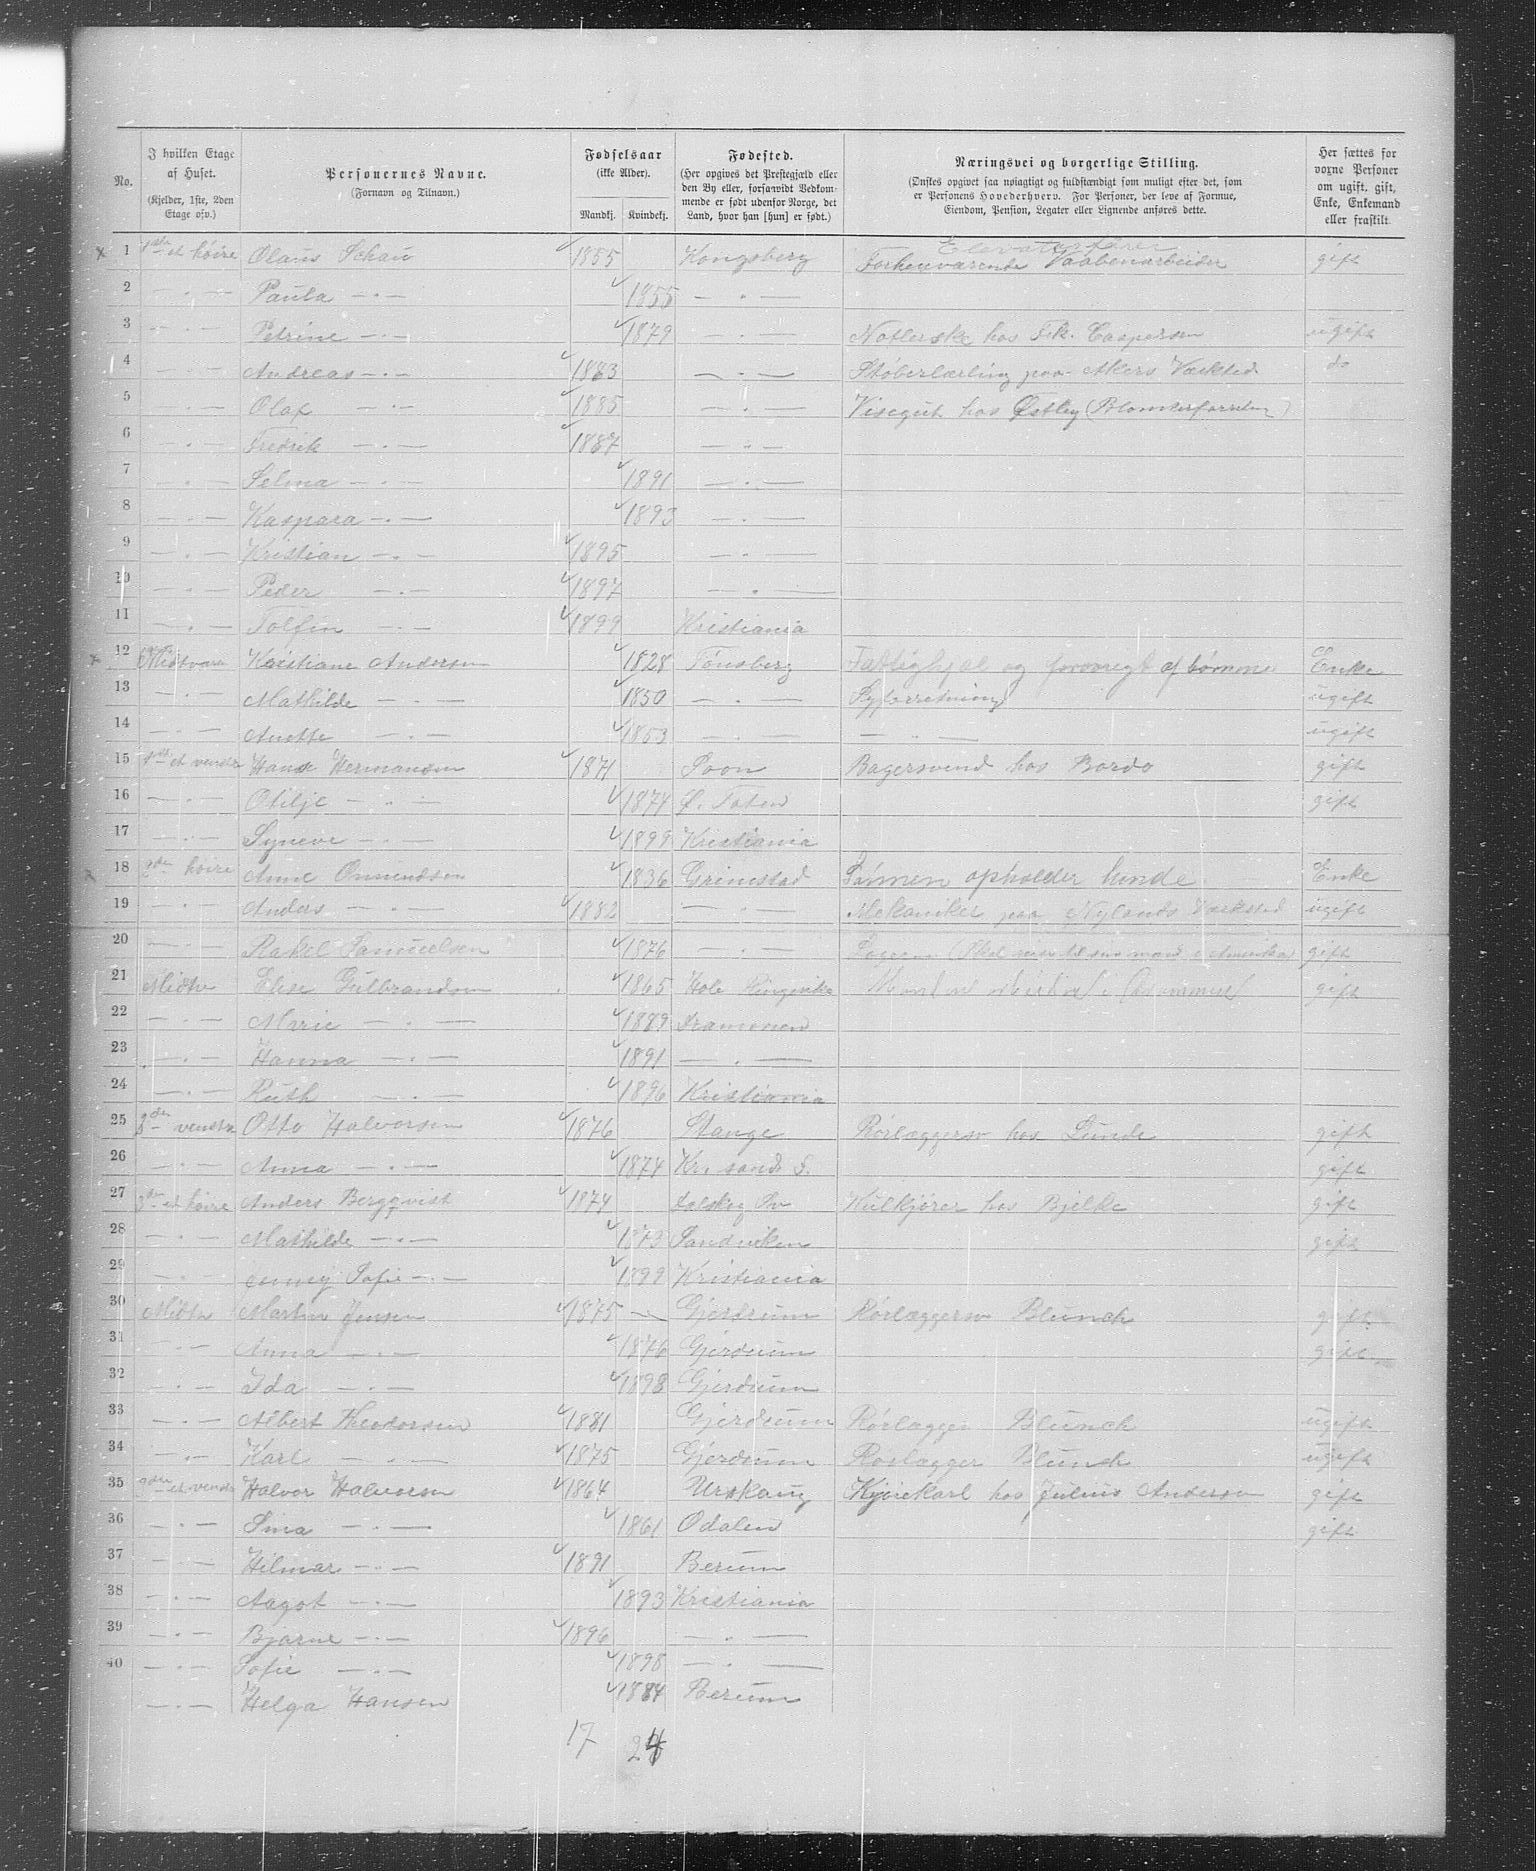 No.
I hvilken Etage af Huset.
(Kjelder, 1ste, 2den Etage osv.)
Personernes Navne.
(Fornavn og Tilnavn.)
Fødselsaar
(ikke Alder).
Mandkj. Kvindekj.
Fødested.
(Her opgives det Prestegjæld eller den By eller, forsaavidt Vedkommende er født udenfor Norge, det Land, hvor han [hun] er født.)
Næringsvei og borgerlige Stilling.
(Ønskes opgivet saa nøiagtigt og fuldstændigt som muligt efter det, som er Personens Hovederhverv. For Personer, der leve af Formue, Eiendom, Pension, Legater eller Lignende anføres dette.
Her sættes for vorne Personer om ugift, gift, Enke, Enkemand eller fraskilt.
1 1ste et høire Olaus Schau 1855 Kongsberg Forhenværende Vaabenarbeider gift
2 — " — Paula — " — 1855 — " —
3 — " — Petrine — " — 1879 — " — hos Frk. Caspersen ugift
4 — " — Andreas — " — 1883 — " — Støberlærling paa Akers Værksted do
5 — " — Olaf — " — 1885 — " — Visegut hos Østby (Blomsterforretn)
6 — " — Fredrik — " — 1887 — " —
7 — " — Selma — " — 1891 — " —
8 — " — Kaspara — " — 1893 — " —
9 — " — Kristian — " — 1895 — " —
10 — " — Peder — " — 1897 — " —
11 — " — Tolfin — " — 1899 Kristiania
12 Kristiane Andersen 1828 Tønsberg og af Enke
13 — " — Mathilde — " — 1850 — " — Syforretning ugift
14 — " — Anette — " — 1853 — " — — " — ugift
15 1ste et venstre Hans Hermansen 1871 Soon Bagersvend hos Bordo gift
16 — " — Otilje — " — 1874 Ø. Toten gift
17 — " — Syneve — " — 1899 Kristiania
18 2den høire Anne Omundsen 1836 Grimstad Sønnen opholder hende Enke
19 — " — Anders — " — 1882 — " — Mekaniker paa Nylands Værksted ugift
20 — " — Rakel Samuelsen 1876 — " — gift
21 Midtre Elise Gulbrandsen 1865 Hole Ringerike gift
22 — " — Marie — " — 1889 Drammen
23 — " — Hanna — " — 1891 — " —
24 — " — Ruth — " — 1896 Kristiania
25 2den venstre Otto Halvorsen 1876 Stange Rørlæggersv hos Lunde gift
26 — " — Anna — " — 1874 Kr. sand S. gift
27 3die et høire Anders Bergqvist 1874 Kulkjører hos Bjelke gift
28 — " — Mathilde — " — 1873 Sandviken gift
29 — " — Sofie — " — 1899 Kristiania
30 Midtre Martin Jensen 1875 — Gjerdrum Rørlæggersv Blunch gift
31 — " — Anna — " — 1876 Gjerdrum gift
32 — " — Ida — " — 1898 Gjerdrum
33 — " — Albert Theodorsen 1881 Gjerdrum Rørlægger Blunch ugift
34 — " — Karl — " — 1875 Gjerdrum Rørlægger Blunch ugift
35 3die et venstre Halvor Halvorsen 1864 Urskoug Kjørekarl hos Julius Andersen gift
36 — " — Sina — " — 1861 Odalen gift
37 — " — Hilmar — " — 1891 Berum
38 — " — Aagot — " — 1893 Kristiania
39 — " — Bjarne — " — 1896 — " —
40 — " — Sofie — " — 1898 — " —
— " — Helga Hansen 1884 Berum
17 24